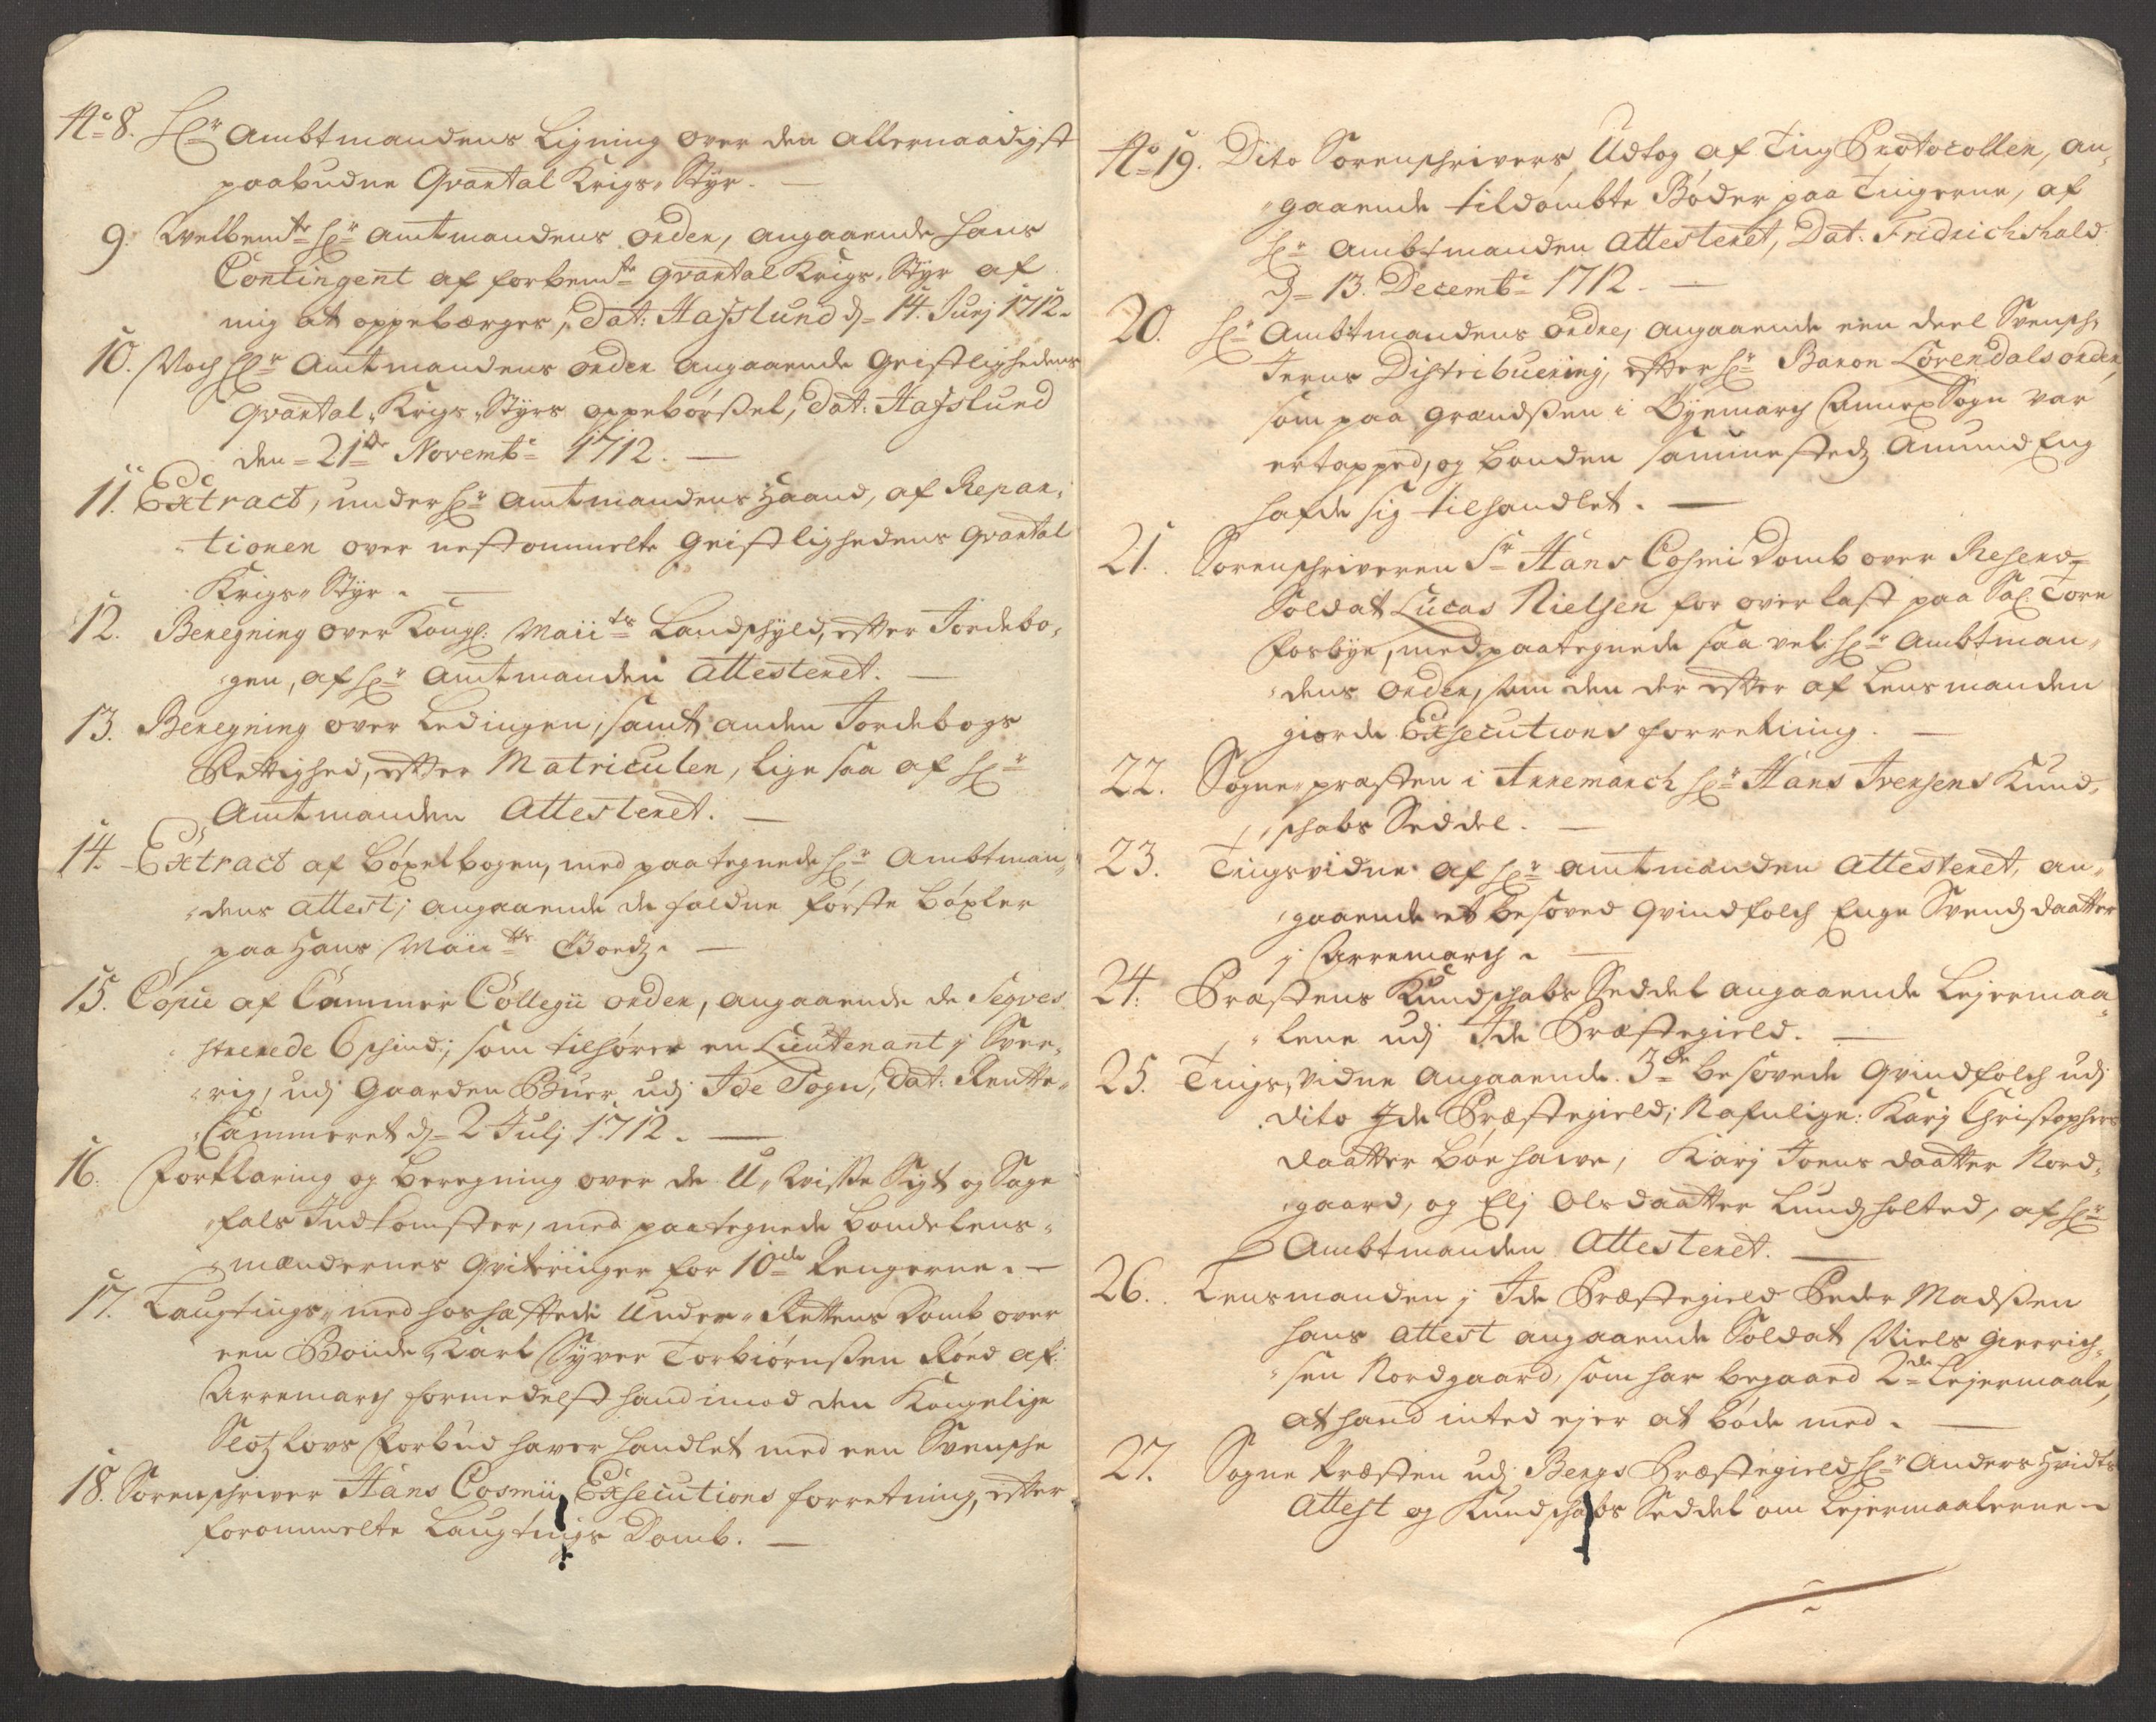 No 8. Hr Ambtmandens Ligning over den allernaadigst
paabudne Qvartal Krigs-Styr.
9. Welbemte Hr Amtmandens Orden, angaaende hans
Contingent af forbemte Qvartal Krigs-Styr af
mig at oppebærges, Dat: Hafslund d. 14. Junj 1712.
10. Noch Hr Amtmandens Orden angaaende Geistlighedens
Qvartal-Krigs-Styrs oppebørsel, Dat: Hafslund
den 21de Novembr 1712.
11. Extract, under Hr Amtmandens Haand, af Repar-
tionen over nestommelte Geistlighedens Qvartal
Krigs-Styr.
12. Beregning over Kongl: Maiits Landschyld, efter Jordebo-
gen, af Hr Amtmanden Attesteret.
13. Beregning over Ledingen, samt anden Jordebogs
Rettighed, efter Matriculen, lige saa af Hr
Amtmanden Attesteret.
14. Extract af Bøxelbogen, med paategnede Hr Ambtman-
dens attest, angaaende de faldne første bøxler
paa Hans Maiits Goedz.
15. Copie af Cammer Collegii orden, angaaende de Seqves-
strerede 6 schind:, som tilhører en Lieutenant j Sver-
rig, udj Gaarden Buer udj Ide Sogn, Dat: Rentte-
Cammeret d. 2 Julj 1712.
16. Forklaring og beregning over de U-Wisse Sigt og Sage
fals Indkomster, med paategnede bondelens-
mændernes Qviteringer for 10de Pengerne.
17. Laugtings- med hoshæftede Under-Rettens Domb over
een Bonde Karl Syver Torbiørnssen Røed af
Arremarch formedelst hand imod den Kongelige
Slotzlovs Forbud haver handlet med een Svensche
18. Sorenschriver Hans Cosmii Exsecutions forretning, efter
forommelte Laugtings Domb.
No 19. Dito Sorenschrivers Udtog af Ting Protocollen, an-
gaaende tildømbte Bøder paa Tingerne, af
Hr Ambtmanden Attesteret, Dat: Fridrichshald
d. 13. Decembr 1712.
20. Hr Ambtmandens ordre, angaaende een deel Svensch-
Jerns Distribuering, efter Hr Baron Lövendals orden
som paa grændssen i Øyemarch Annex Sogn var
ertapped, og bonden sammestedz Amund Eng
hafde sig tilhandlet.
21. Sorenschriveren Sr Hans Cosmi Domb over Reserve
Soldat Lucas Nielsen for overlast paa Sal: Tore
Fosbye, med paategnede saa vel Hr Ambtman-
dens Orden, som den der efter af Lensmanden
giorde Exsecutions forretning.
22. Sogne-præsten i Arremarch Hr Hans Iversens Kund-
schabs Seddel.
23. Tingsvidne af Hr Amtmanden Attesteret, an-
gaaende et besøved Qvindfolch Enge Svendsdaatter
j Arremarch.
24. Præstens Kundschabs Seddel angaaende Lejermaa-
lene udj Ide Præstegield.
25. Tings-Vidne angaaende 3de besøvede Qvindfolch udj
dito Ide Præstegield, Nafnlige: Karj Christophers
daatter , Karj Joens daatter Nord-
gaard, og Elj Olsdaatter Lundsholted, af Hr
Ambtmanden Attesteret.
26. Lensmanden j Ide Præstegield Peder Madssen
hans attest angaaende Soldat Niels
sen Nordgaard, som har begaaed 2de Lejermaale,
at hand inted ejer at bøde med.
27. Sogne Præsten udj Bergs Præstegield Hr Anders Hvidts
Attest og Kundschabs Seddel om Lejermaalerne